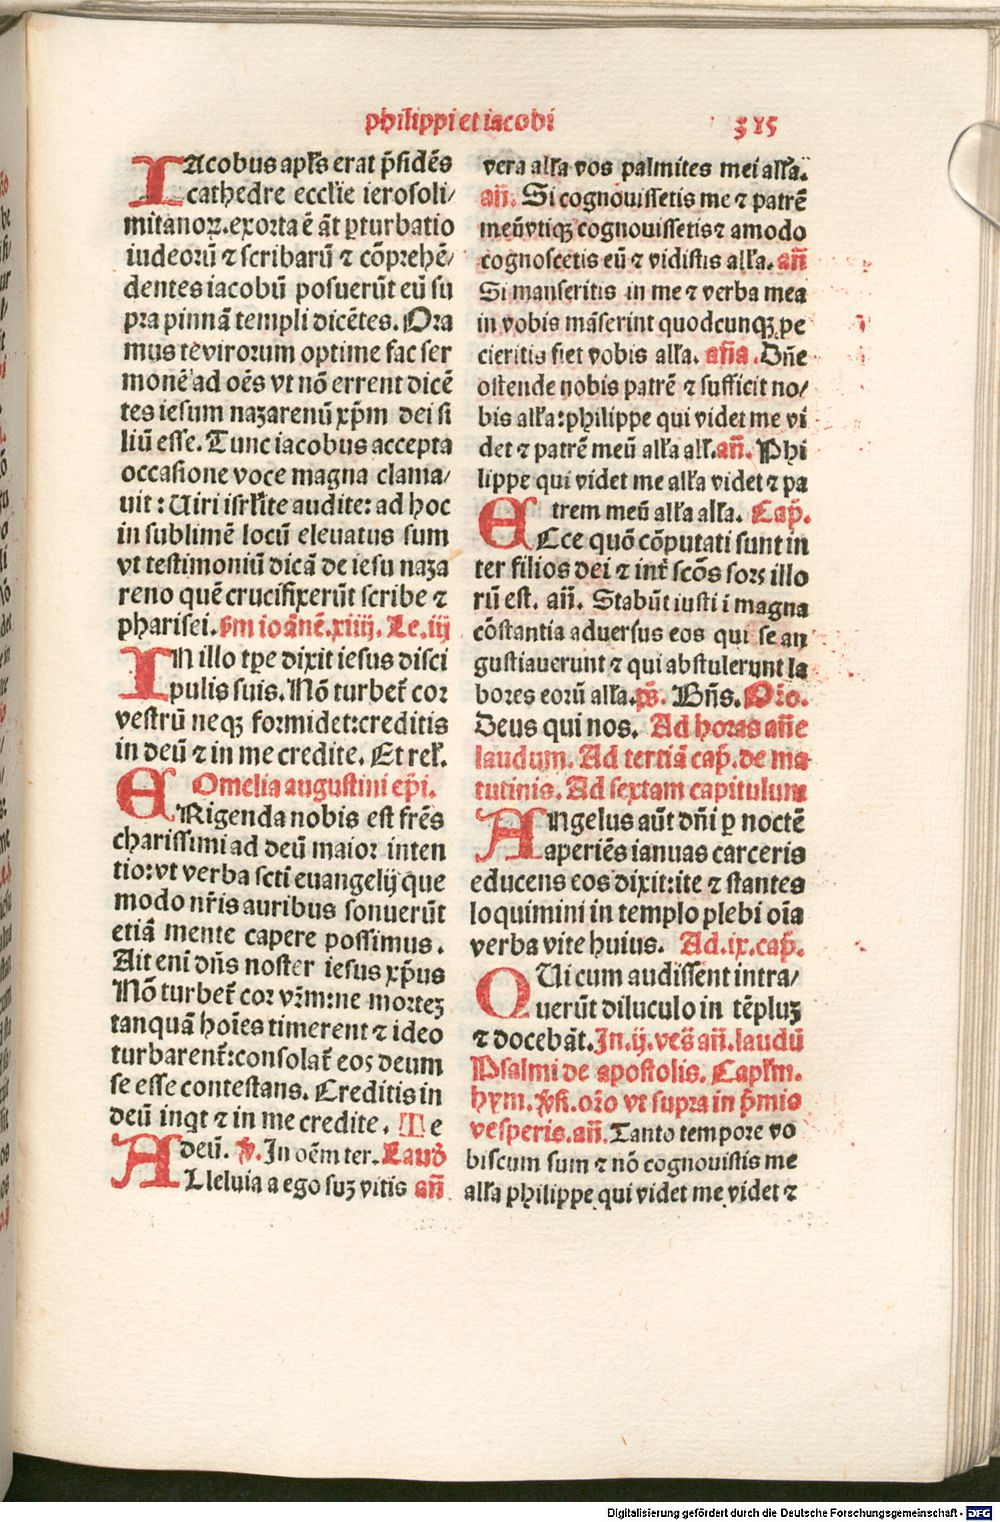 philippi et iacobi 315
IAcobus apl's erat p̄sidēs
cathedre eccl'ie ierosoli/
mitanoꝝ.exorta ē āt ꝑturbatio
iudeorū ⁊ scribarū ⁊ cōprehē/
dentes iacobū posuerūt eū su
pra pinnā templi dicētes. Ora
mus te virorum optime fac ser
monē ad oēs vt nō errent dicē
tes iesum nazarenū xp̄m dei fi
liū esse. Tunc iacobus accepta
occasione voce magna clama/
uit : Uiri isrl'ite audite: ad hoc
in sublimē locū eleuatus sum
vt testimoniū dicā de iesu naza
reno quē crucifixerūt scribe ⁊
pharisei. ẜm ioānē.xiiij. Le.iij
IN illo tp̄e dixit iesus disci
pulis suis. Nō turbet̄ cor
vestrū neqꝫ formidet:creditis
in deū ⁊ in me credite. Et rel'.
Omelia augustini ep̄i.
ERigenda nobis est fr̄ēs
charissimi ad deū maior inten
tio: vt verba sct̄i euangelij que
modo nr̄is auribus sonuerūt
etiā mente capere possimus.
Ait eni dn̄s noster iesus xp̄us
Nō turbet̄ cor vr̄m: ne mortez
tanquā hoīes timerent ⁊ ideo
turbarent̄: consolat̄ eos deum
se esse contestans. Creditis in
deū inqt ⁊ in me credite. Te
deū. ℣. In oēm ter. Laud̄
ALleluia a ego suꝫ vitis an̄
vera all'a vos palmites mei all'a.
an̄. Si cognouissetis me ⁊ patrē
meū vtiqꝫ cognouissetis ⁊ amodo
cognoscetis eū ⁊ vidistis all'a. an̄
Si manseritis in me ⁊ verba mea
in vobis māserint quodcunqꝫ pe
cieritis fiet vobis all'a. an̄a. Dn̄e
ostende nobis patrē ⁊ sufficit no/
bis all'a: philippe qui videt me vi
det ⁊ patrē meū all'a all'. an̄. Phi
lippe qui videt me all'a videt ⁊ pa
trem meū all'a all'a. Cap̄.
ECce quō cōputati sunt in
ter filios dei ⁊ int̄ scōs sors illo
rū est. an̄. Stabūt iusti i magna
cōstantia aduersus eos qui se an
gustiauerunt ⁊ qui abstulerunt la
bores eorū all'a. ps̄. Bn̄s. Or̄o.
Deus qui nos. Ad horas an̄e
laudum. Ad tertiā cap̄. de ma
tutinis. Ad sextam capitulum
ANgelus aūt dn̄i ꝑ noctē
aperiēs ianuas carceris
educens eos dixit: ite ⁊ stantes
loquimini in templo plebi oīa
verba vite huius. Ad.ix.cap̄.
QUi cum audissent intra/
uerūt diluculo in tēpluꝫ
⁊ docebāt. In.ij.ves̄ an̄.laudū
Psalmi de apostolis. Capl'm.
hym. v̄s. or̄o vt supra in p̄mis
vesperis. an̄. Tanto tempore vo
biscum sum ⁊ nō cognouistis me
all'a philippe qui videt me videt ⁊
Digitalisierung gefördert durch die Deutsche Forschungsgemeinschaft - DFG